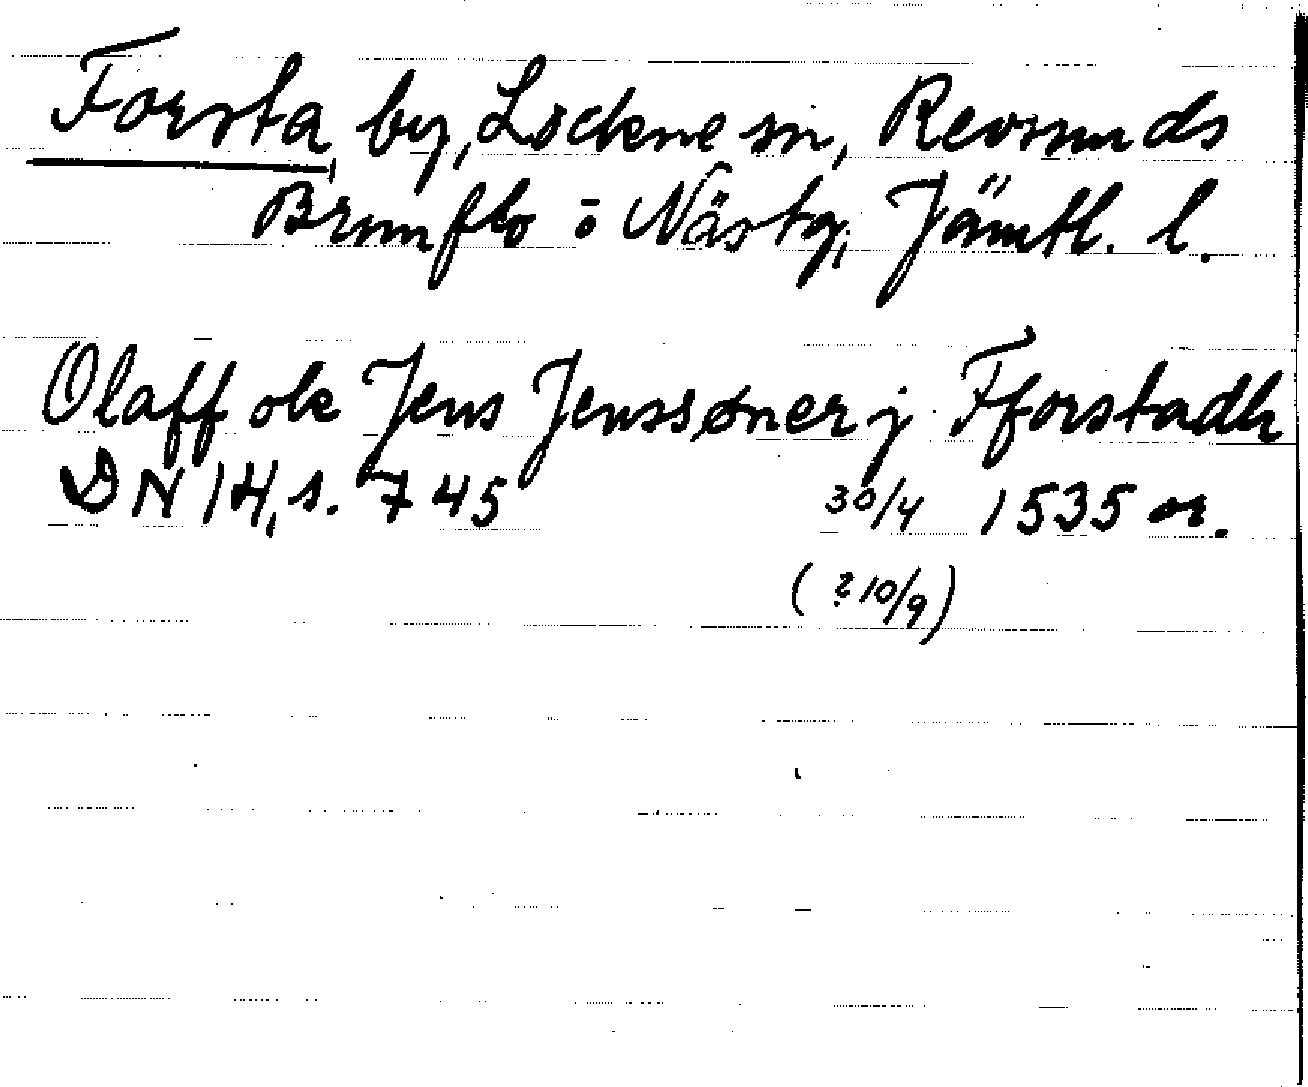 Forsta, by, Lockne sn, Revsunds
Brunflo o Näs tg, Jämtl. l.
Olaff ok Jens Jenssøner j Fforstadh
DN 14, s. 745 30/4 1535 or.
(? 10/9)